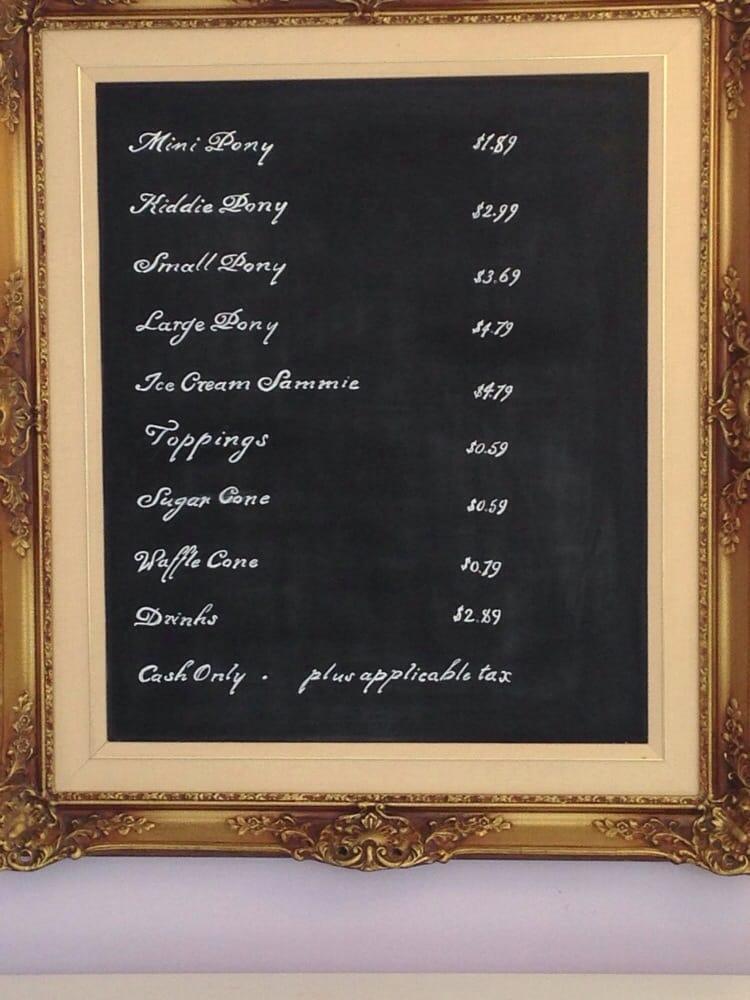 Mini Pony $1.89
Kiddie Pony $2.99
Small Pony $3.69
Large Pony $4.79
Ice Cream Sammie $4.79
Toppings $0.59
Sugar Cone $0.59
Waffle Cone $0.79
Drinks $2.89
Cash Only . plus applicable tax